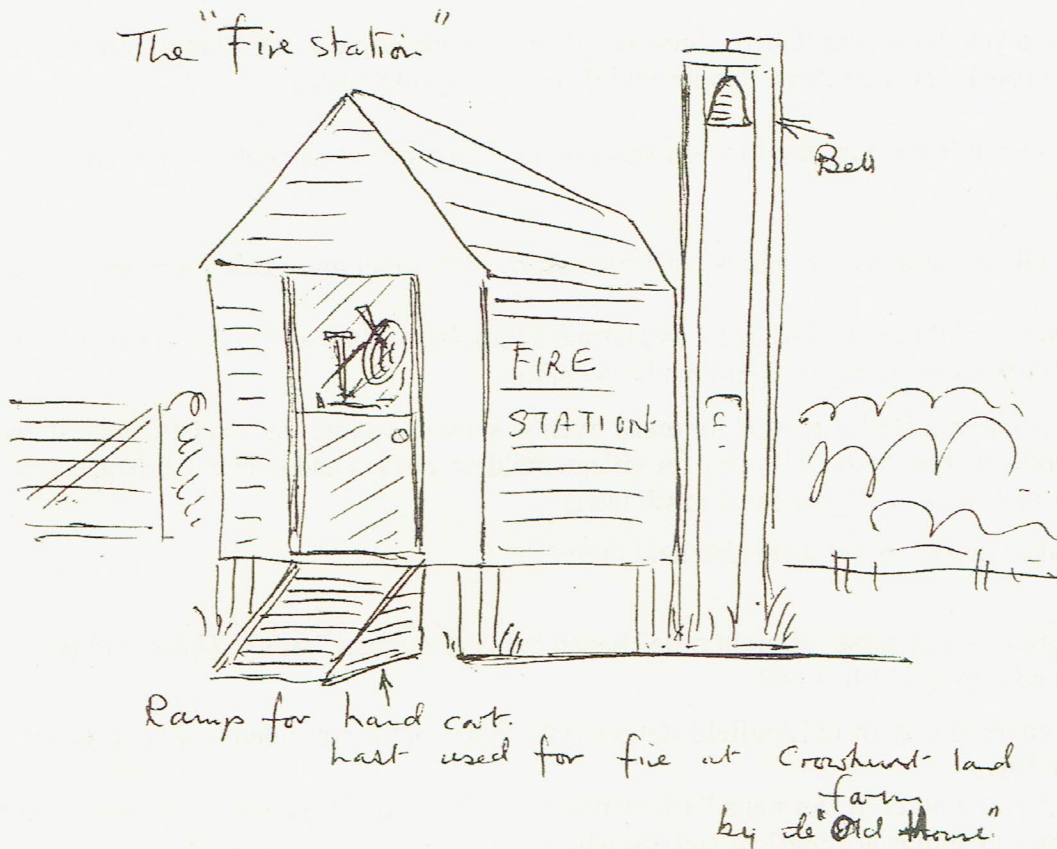 The "Fire station"
Bell
FIRE
STATION
Ramp for hand cart.
Last used for fire at Crowhurst land
farm
by de "Old House"